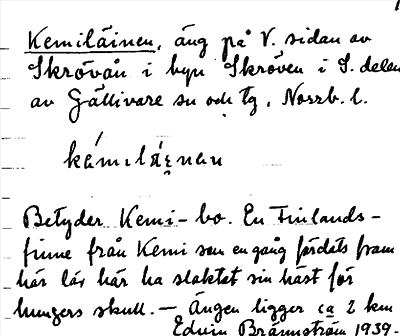 Kemiläinen, äng på V. sidan av
Skrövån i byn Skröven i S. delen
av Gällivare sn och tg, Norrb. l.
kámiläi̯nan
Betyder Kemi-bo. En Finlands-
finne från Kemi som en gång färdats fram
här lär här ha slaktat sin häst för
hungers skull. — Ängen ligger ca 2 km
Edvin Brännström 1939.